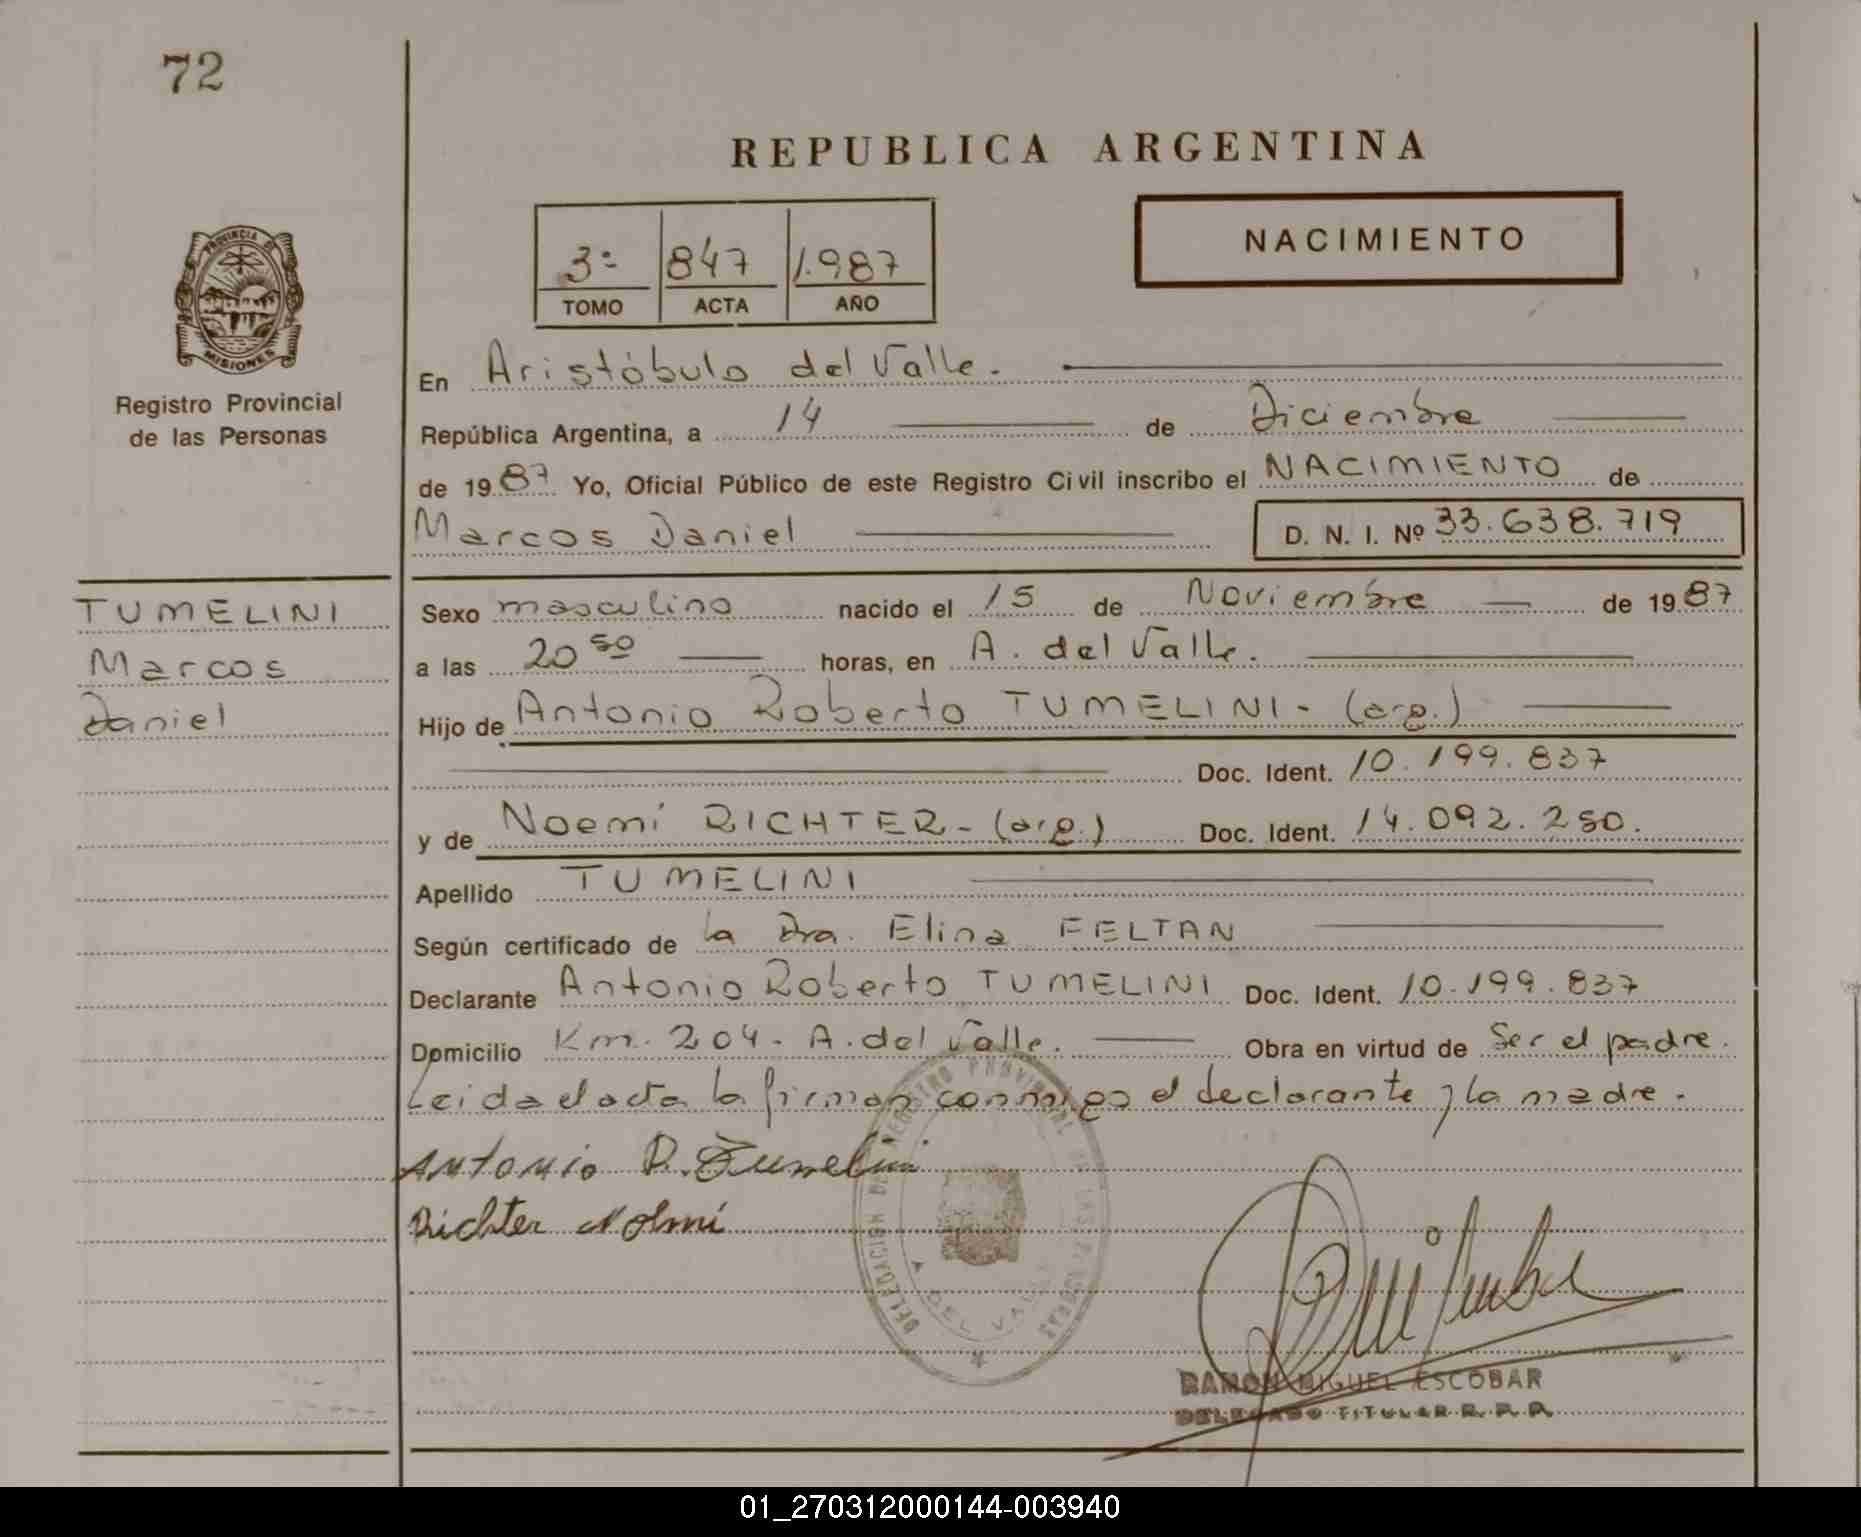 72
REPUBLICA ARGENTINA
NACIMIENTO
3º 847 1.987
TOMO ACTA AÑO
PROVINCIA DE
MISIONES
Registro Provincial
de las Personas
En Aristóbulo del Valle.
República Argentina, a 14 de Diciembre
de 1987 Yo, Oficial Público de este Registro Civil inscribo el NACIMIENTO de
Marcos Daniel D. N. I. Nº 33.638.719
TUMELINI
Marcos
Daniel
Sexo masculino nacido el 15 de Noviembre de 1987
a las 20 50 horas, en A. del Valle.
Hijo de Antonio Roberto TUMELINI - (arg.)
Doc. Ident. 10.199.837
y de Noemí RICHTER - (arg.) Doc. Ident. 14.092.250.
Apellido TUMELINI
Según certificado de la Dra. Elina FELTAN
Declarante Antonio Roberto TUMELINI Doc. Ident. 10.199.837
Domicilio Km. 204 - A. del Valle. Obra en virtud de Ser el padre.
Leida el acta la firman conmigo el declarante y la madre.
Antonio R. Tumelini
Richter Noemí
DELEGACION DEL REGISTRO PROVINCIAL DE LAS PERSONAS
A. DEL VALLE
RAMON MIGUEL ESCOBAR
DELEGADO TITULAR R. P. P.
01_270312000144-003940